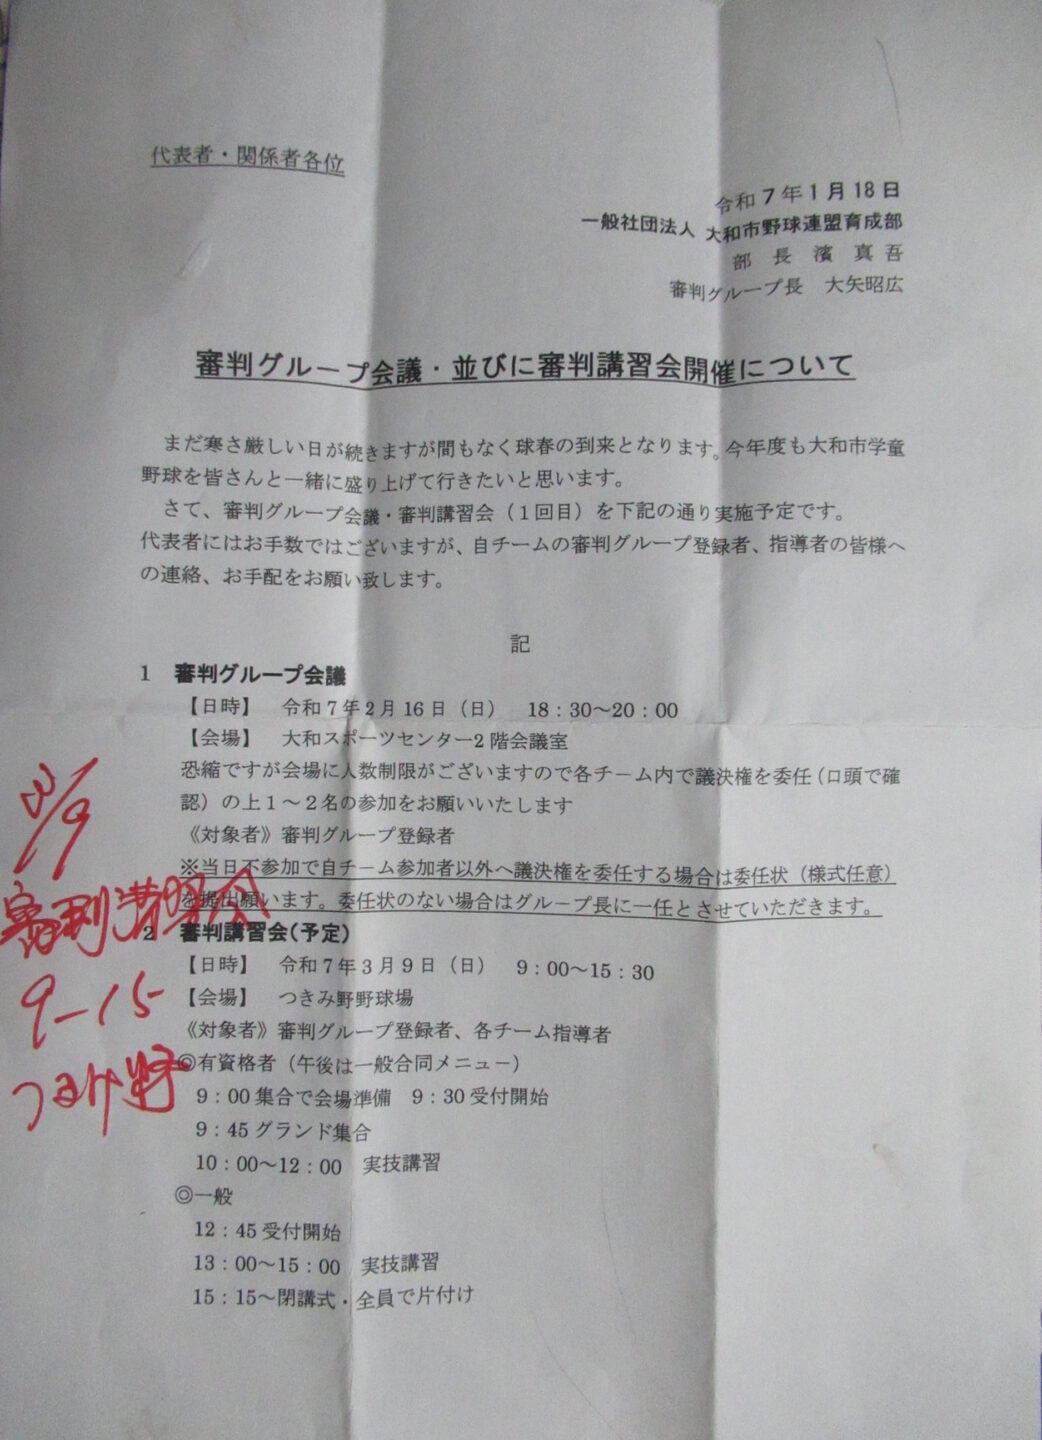 代表者・関係者各位
令和7年1月18日
一般社団法人　大和市野球連盟育成部
部　長　濱　真　吾
審判グループ長　大矢昭広
審判グループ会議・並びに審判講習会開催について
まだ寒さ厳しい日が続きますが間もなく球春の到来となります。今年度も大和市学童
野球を皆さんと一緒に盛り上げて行きたいと思います。
さて、審判グループ会議・審判講習会（1回目）を下記の通り実施予定です。
代表者にはお手数ではございますが、自チームの審判グループ登録者、指導者の皆様へ
の連絡、お手配をお願い致します。
記
1　審判グループ会議
【日時】　令和7年2月16日（日）　18：30～20：00
【会場】　大和スポーツセンター2階会議室
恐縮ですが会場に人数制限がございますので各チーム内で議決権を委任（口頭で確
認）の上1～2名の参加をお願いいたします
《対象者》審判グループ登録者
※当日不参加で自チーム参加者以外へ議決権を委任する場合は委任状（様式任意）
を提出願います。委任状のない場合はグループ長に一任とさせていただきます。
2　審判講習会（予定）
【日時】　令和7年3月9日（日）　9：00～15：30
【会場】　つきみ野野球場
《対象者》審判グループ登録者、各チーム指導者
◎有資格者（午後は一般合同メニュー）
9：00集合で会場準備　9：30受付開始
9：45グランド集合
10：00～12：00　実技講習
◎一般
12：45受付開始
13：00～15：00　実技講習
15：15～閉講式・全員で片付け
3/9
審判講習会
9-15
つきみ野